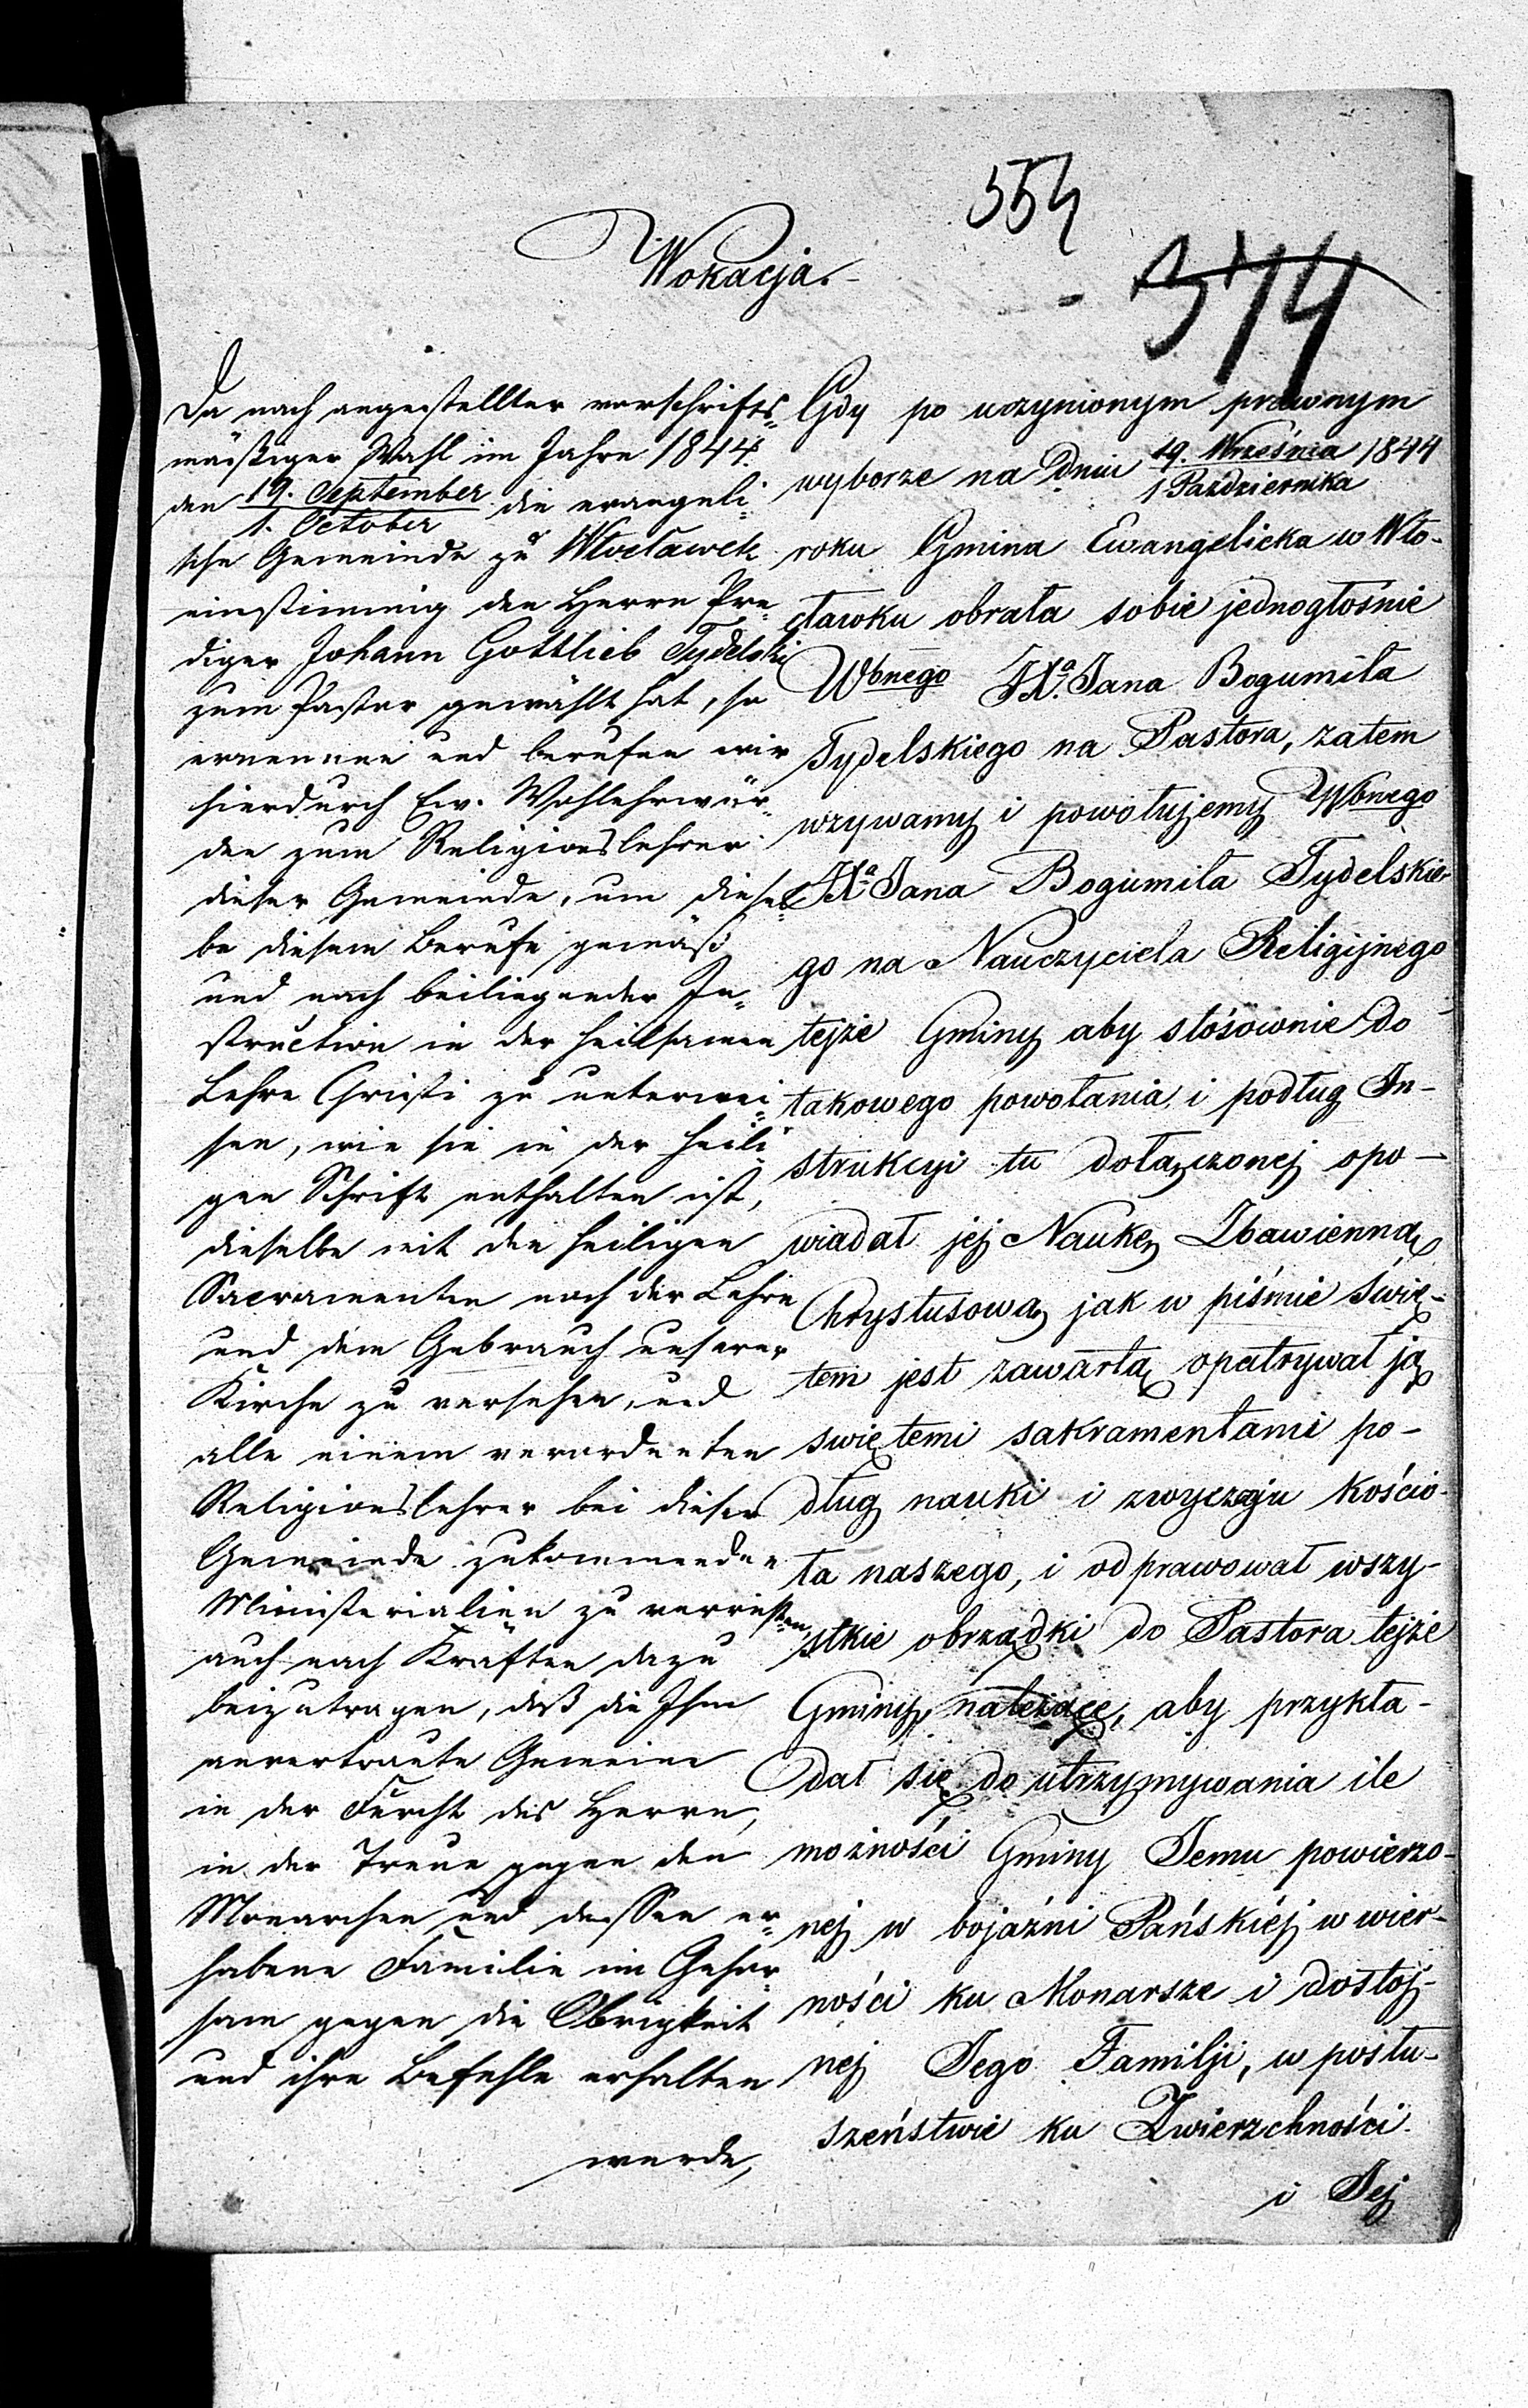 554
Wokacja.-
- 374
Da nach angestellter vorschrifts=
mäßiger Wahl im Jahre 1844.
den 19. September / 1. October die evangeli=
sche Gemeinde zu Włocławek
einstimmig den Herrn Pre=
diger Johann Gottlieb Tydelski
zum Pastor gewählt hat, so
ernennen und berufen wir
hierdurch Ew. Wohlehrwür=
den zum Religionslehrer
dieser Gemeinde, um diesel=
be diesem Berufe gemäß
und nach beiliegender In=
struction in der heilsamen
Lehre Christi zu unterwei=
sen, wie sie in der heili=
gen Schrift enthalten ist,
dieselbe mit den heiligen
Sacramenten nach der Lehre
und dem Gebrauch unserer
Kirche zu versehen, und
alle einem verordneten
Religionslehrer bei dieser
Gemeinde zukommenden
Ministerialien zu verrichten,
auch nach Kräften dazu
beizutragen, daß die Ihm
anvertraute Gemeine
in der Furcht des Herrn,
in der Treue gegen den
Monarchen und dessen er=
habene Familie im Gehor=
sam gegen die Obrigkeit
und ihre Befehle erhalten
werde,
Gdy po uczynionym prawnym
wyborze na dniu 19. Września / 1 Października 1844
roku Gmina Ewangelicka w Wło-
cławku obrała sobie jednogłośnie
Wbnego JXa. Jana Bogumiła
Tydelskiego na Pastora, zatem
wzywamy i powołujemy Wbnego
JXa Jana Bogumiła Tydelskie-
go na Nauczyciela Religijnego
tejże Gminy aby stósownie do
takowego powołania i podług In-
strukcyi tu dołączonej opo-
wiadał jej Naukę Zbawienną
Chrystusową jak w piśmie świę-
tem jest zawarta opatrywał ją
swiętemi sakramentami po-
dług nauki i zwyczaju Kościo-
ła naszego, i odprawował wszy-
stkie obrządki do Pastora tejże
Gminy należące, aby przykła-
dał się do utrzymywania ile
możności Gminy Jemu powierzo-
nej w bojaźni Pańskiéj w wier-
ności ku Monarsze i dostoj-
nej Jego Familji, w posłu-
szeństwie ku Zwierzchności
i Jej